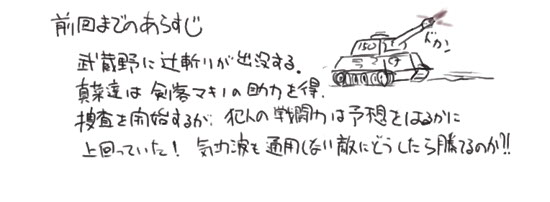 前回までのあらすじ
武蔵野に辻斬りが出没する。
真菜達は剣客マキノの助力を得、
捜査を開始するが、犯人の戦闘力は予想をはるかに
上回っていた！ 気功波も通用しない敵にどうしたら勝てるのか!!
150
ドカン